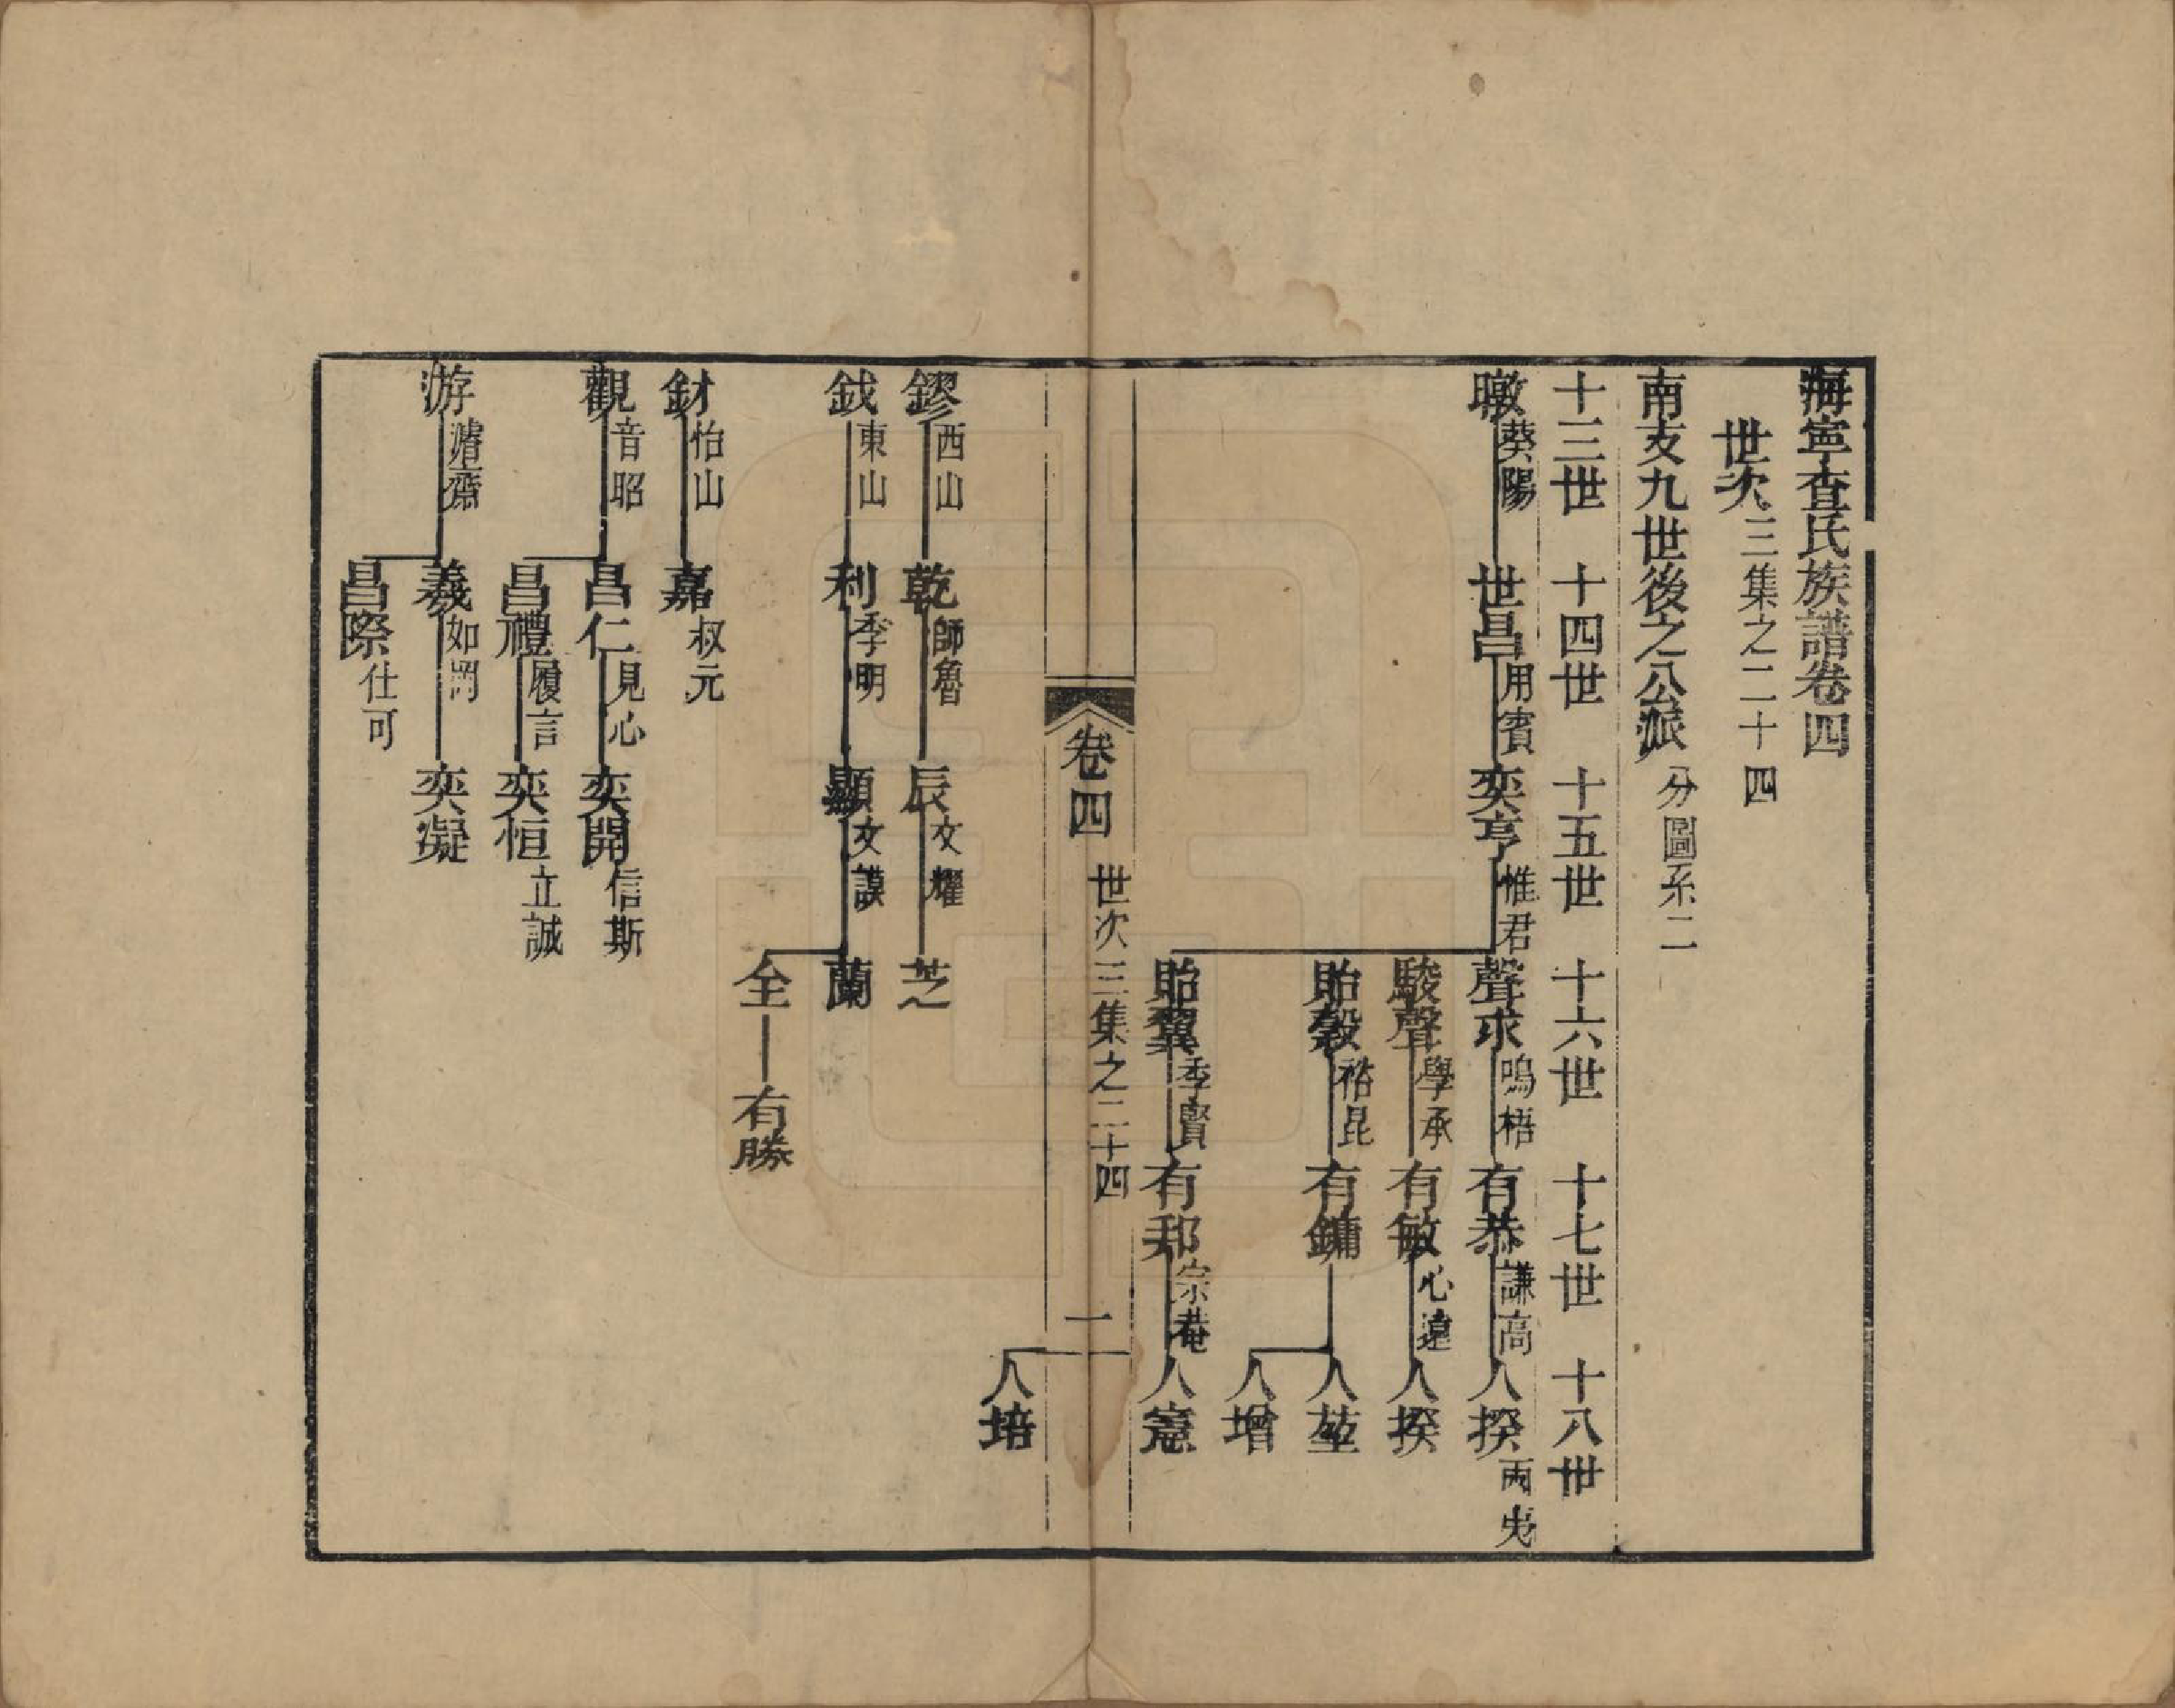 海寧查氏族譜卷四
世次三集之二十四
南支九世後之公派 分圖系二
十三世 十四世 十五世 十六世 十七世 十八世
暾葵陽 世昌用賓 奕亨惟君 聲求鳴梧 有恭謙高 人揆丙夷
駿聲學承 有敏心遠 人揆
貽穀裕昆 有鏞 人堃
人增
貽翼季賢 有邦宗菴 人憲
卷四 世次三集之二十四 一
人培
鏐西山 乾師魯 辰文耀 芝
鉞東山 利季明 顯文謨 蘭
全 有勝
釮怡山 嘉叔元
觀音昭 昌仁見心 奕開信斯
昌禮履言 奕恒立誠
游濬齋 義如岡 奕凝
昌際仕可